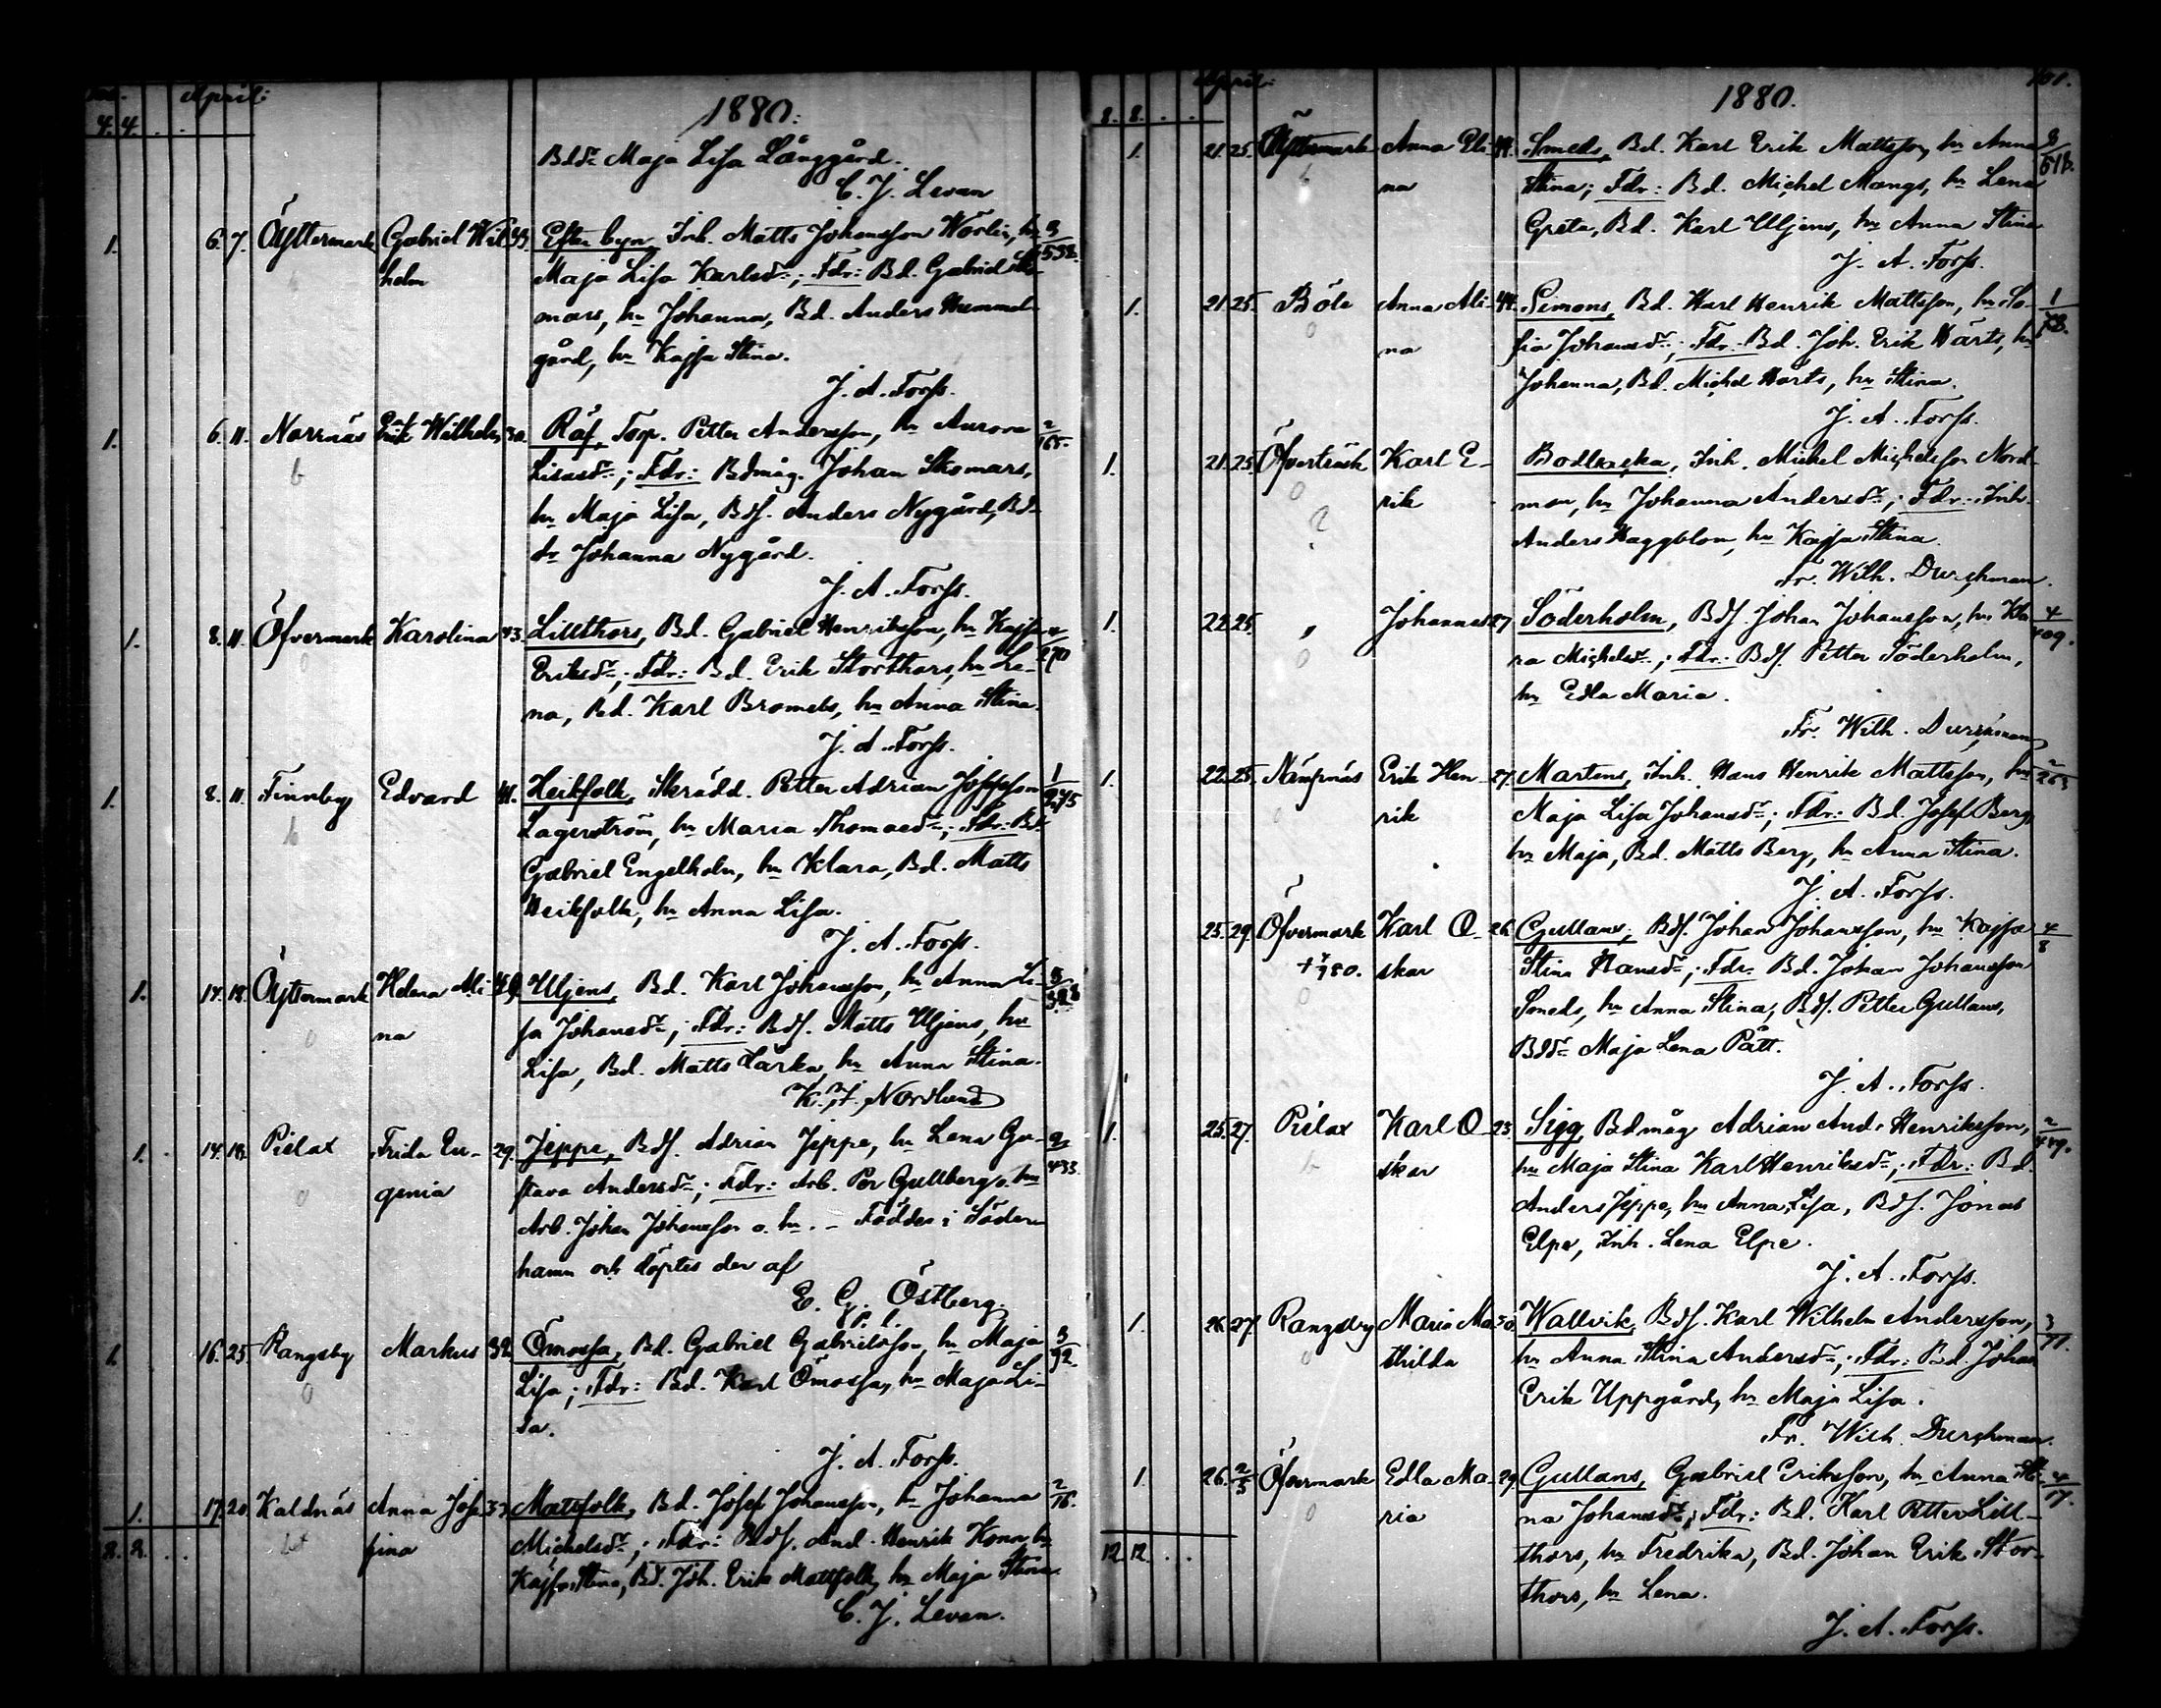 April:
4. 4. . .
1880.
Bddr Maja Lisa Långgård.
C. J. Levan
1. 6. 7. Öfstermark Gabriel Wil- Efter byn, Inh. Matts Johansson Wörlin, hu 3/532.
helm Maja Lisa Karlsdr; Fdr: Bd. Gabriel
mars, hu Johanna, Bd. Anders Hammel-
gård, hu Kajsa Stina.
J. A. Forss.
1. 6. 11. Norrnäs Erik Wilhelm 30. Räf, Torp. Petter Andersson, hu Aurora 2/165.
b Lisasdr; Fdr: Bdmåg. Johan Skomars,
hu Maja Lisa, Bdf. Anders Nygård, Bd-
dr Johanna Nygård.
J. A. Forss.
1. 8. 11. Öfvermark Karolina 43. Lillthors, Bd. Gabriel Henriksson, hu Kajsa 4/270
0 Eriksdr; Fdr: Bd. Erik Storthors, hu Le-
na, Bd. Karl Bromels, hu Anna Stina.
J. A. Forss.
1. 8. 11. Finnby Edvard 41. Heikfolk, Skrädd. Petter Adrian Josefsson 1/275
b Lagerström, hu Maria Thomasdr; Fdr: Bd.
Gabriel Engelholm, hu Klara, Bd. Matts
Heikfolk, hu Anna Lisa.
J. A. Forss.
1. 14. 18. Öfstermark Helena Ali- Uljens, Bd. Karl Johansson, hu Anna Li-
0 na sa Johansdr; Fdr: Bdf. Matts Uljens, hu
Lisa, Bd. Matts Lärka, hu Anna Stina.
K. J. Nordlund
1. 14. 18. Pielax Frida Eu- 29. Jeppe, Bdf. Adrian Jeppe, hu Lena Gu- 2/433.
0 genia stava Andersdr; Fdr: Arb. Per Gullberg o. hu
Arb. Johan Johansson o. hu. – Föddes i Söder-
hamn och döptes der af
E. G. Östberg.
1. 16. 25. Rangsby Markus 32 Ömossa, Bd. Gabriel Gabrielsson, hu Maja 3/92.
0 Lisa; Fdr: Bd. Karl Ömossa, hu Maja Li-
sa.
J. A. Forss.
1. 17. 20. Kaldnäs Anna Jose- 33 Mattfolk, Bd. Josef Johansson, hu Johanna 2/76.
8. 8. . . fina Michelsdr; Fdr: Bdf. And. Henrik Konn, hu
Kajsa Stina, Bd. Joh. Erik Mattfolk, hu Maja Stina.
C. J. Levan.
April:
8. 8. . .
1880.
1. 21. 25. Öfstermark Anna Eli- Smeds, Bd. Karl Erik Mattsson, hu Anna 3/518.
b na Stina; Fdr: Bd. Michel Mangs, hu Lena
Greta, Bd. Karl Uljens, hu Anna Stina
J. A. Forss.
1. 21. 25. Böle Anna Ali- 44. Simons, Bd. Karl Henrik Mattsson, hu So-
0 na fia Johansdr; Fdr: Bd. Joh. Erik Härts, hu
Johanna, Bd. Michel Härts, hu Stina.
J. A. Forss.
1. 21. 25. Öfverträsk Karl E- Bodbacka, Inh. Mickel Michelsson Nord-
0 rik man, hu Johanna Andersdr; Fdr: Inh.
? Anders Haggblom, hu Kajsa Stina.
Fr. Wilh. Durchman.
1. 22. 25. " Johannes 27 Söderholm, Bdf. Johan Johansson, hu Kla- 4/409.
0 ra Michelsdr; Fdr: Bdf. Petter Söderholm,
hu Edla Maria.
Fr. Wilh. Durchman
1. 22. 25. Nämpnäs Erik Hen- 27. Martens, Inh. Hans Henrik Mattsson, hu 2/263
0 rik Maja Lisa Johansdr; Fdr: Bd. Josef Berg,
hu Maja, Bd. Matts Berg, hu Anna Stina.
J. A. Forss.
25. 29. Öfvermark Karl O- 26. Gullans, Bdf. Johan Johansson, hu Kajsa 4/8
0 skar Stina Hansdr; Fdr: Bd. Johan Johansson
Smeds, hu Anna Stina, Bdf. Petter Gullans,
Bddr Maja Lena Pått.
J. A. Forss.
1. 25. 27. Pielax Karl O- 23. Sigg, Bdmåg Adrian And. Henriksson, 2/449.
b skar hu Maja Stina Karl Henriksdr; Fdr: Bd.
Anders Jeppe, hu Anna Lisa, Bdf. Jonas
Elpe, Inh. Lena Elpe.
J. A. Forss.
1. 26. 27 Rangsby Maria Ma- 30. Wallvik, Bdf. Karl Wilhelm Andersson, 3/71.
0 thilda hu Anna Stina Andersdr; Fdr: Bd. Johan
Erik Uppgård, hu Maja Lisa.
Fr. Wilh. Durchman.
1. 26. 2/5 Öfvermark Edla Ma- 29. Gullans, Gabriel Eriksson, hu Anna Sti- 4/17.
0 ria na Johansdr; Fdr: Bd. Karl Petter Lill-
12 12. . . thors, hu Fredrika, Bd. Johan Erik Stor-
thors, hu Lena.
J. A. Forss.